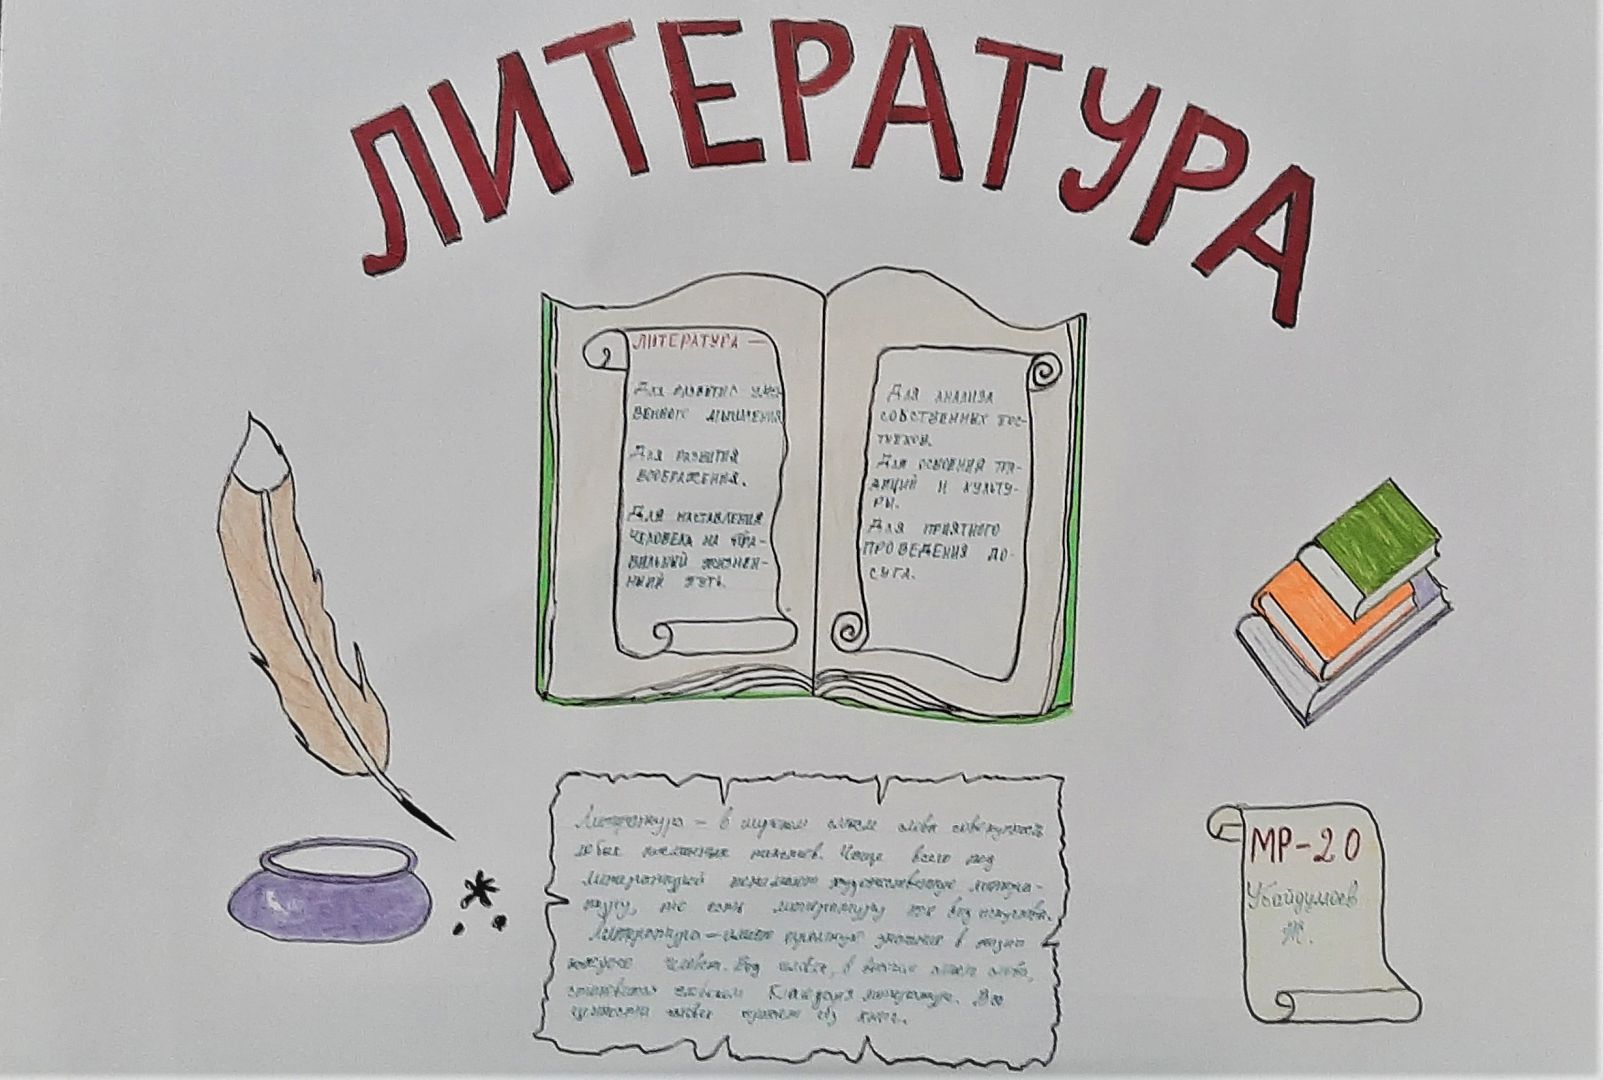 ЛИТЕРАТУРА
ЛИТЕРАТУРА —
Для развития умс-
венного мышления
Для развития
воображения.
Для наставления
человека на пра-
вильный жизнен-
ный путь.
Для анализа
собственных пос-
тупков.
Для освоения тра-
диций и культу-
ры.
Для приятного
проведения до-
суга.
Литература — в широком смысле слова совокупность
любых письменных текстов. Чаще всего под
литературой понимают художественную литера-
туру, то есть литературу как вид искусства.
Литература — имеет огромную значение в жизни
каждого человека. Ведь человек, в полном смысле слова,
становится человеком благодаря литературе. Все
ценности человек черпает из книг.
МР-20
Убайдуллоев
Ж.